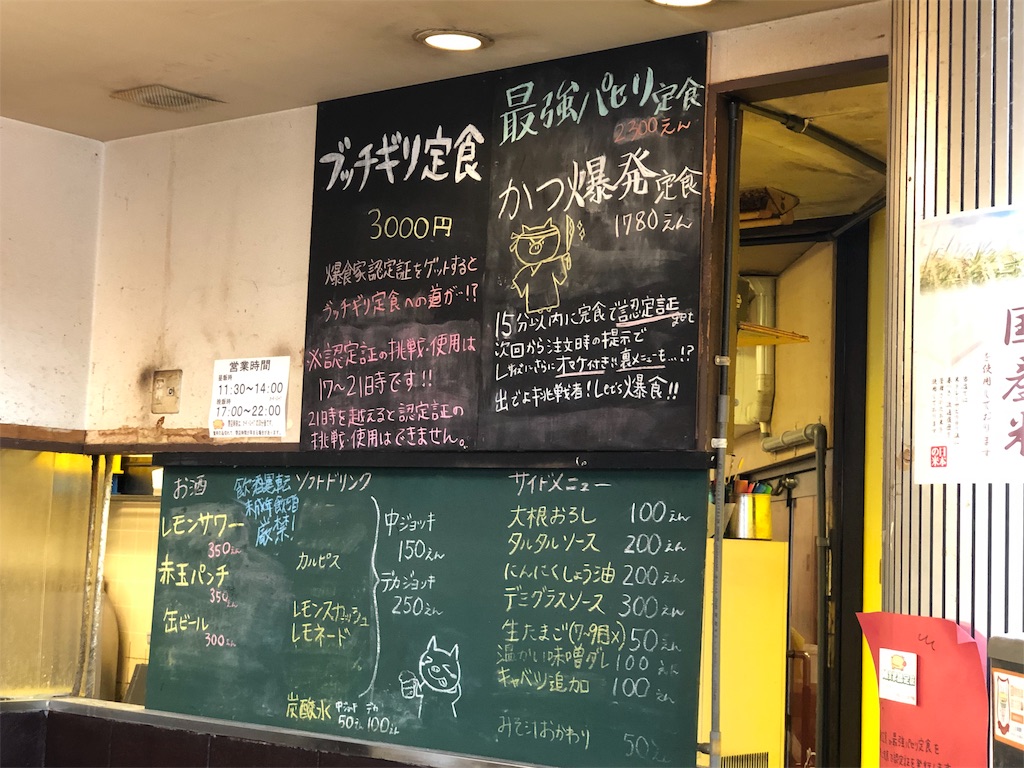 ブッチギリ定食
3000円
爆食家認定証をゲットすると
ブッチギリ定食への道が…!?
※認定証の挑戦・使用は
17〜21時です!!
21時を越えると認定証の
挑戦・使用はできません。
最強パセリ定食
2300えん
かつ爆発定食
1780えん
15分以内に完食で認定証get
次回から注文時の提示で
出でよ挑戦者!Let's爆食!!
営業時間
11:30〜14:00
17:00〜22:00
お酒
飲酒運転
未成年飲酒
厳禁!
レモンサワー
350えん
赤玉パンチ
350えん
缶ビール
300えん
ソフトドリンク
カルピス
レモンスカッシュ
レモネード
中ジョッキ
150えん
デカジョッキ
250えん
炭酸水 中ジョッキ デカ
50えん 100えん
サイドメニュー
大根おろし 100えん
タルタルソース 200えん
にんにくしょう油 200えん
デミグラスソース 300えん
生たまご(7〜9月×) 50えん
温かい味噌ダレ 100えん
キャベツ追加 100えん
みそ汁おかわり 50えん
国産米
を使用しております
日本の米